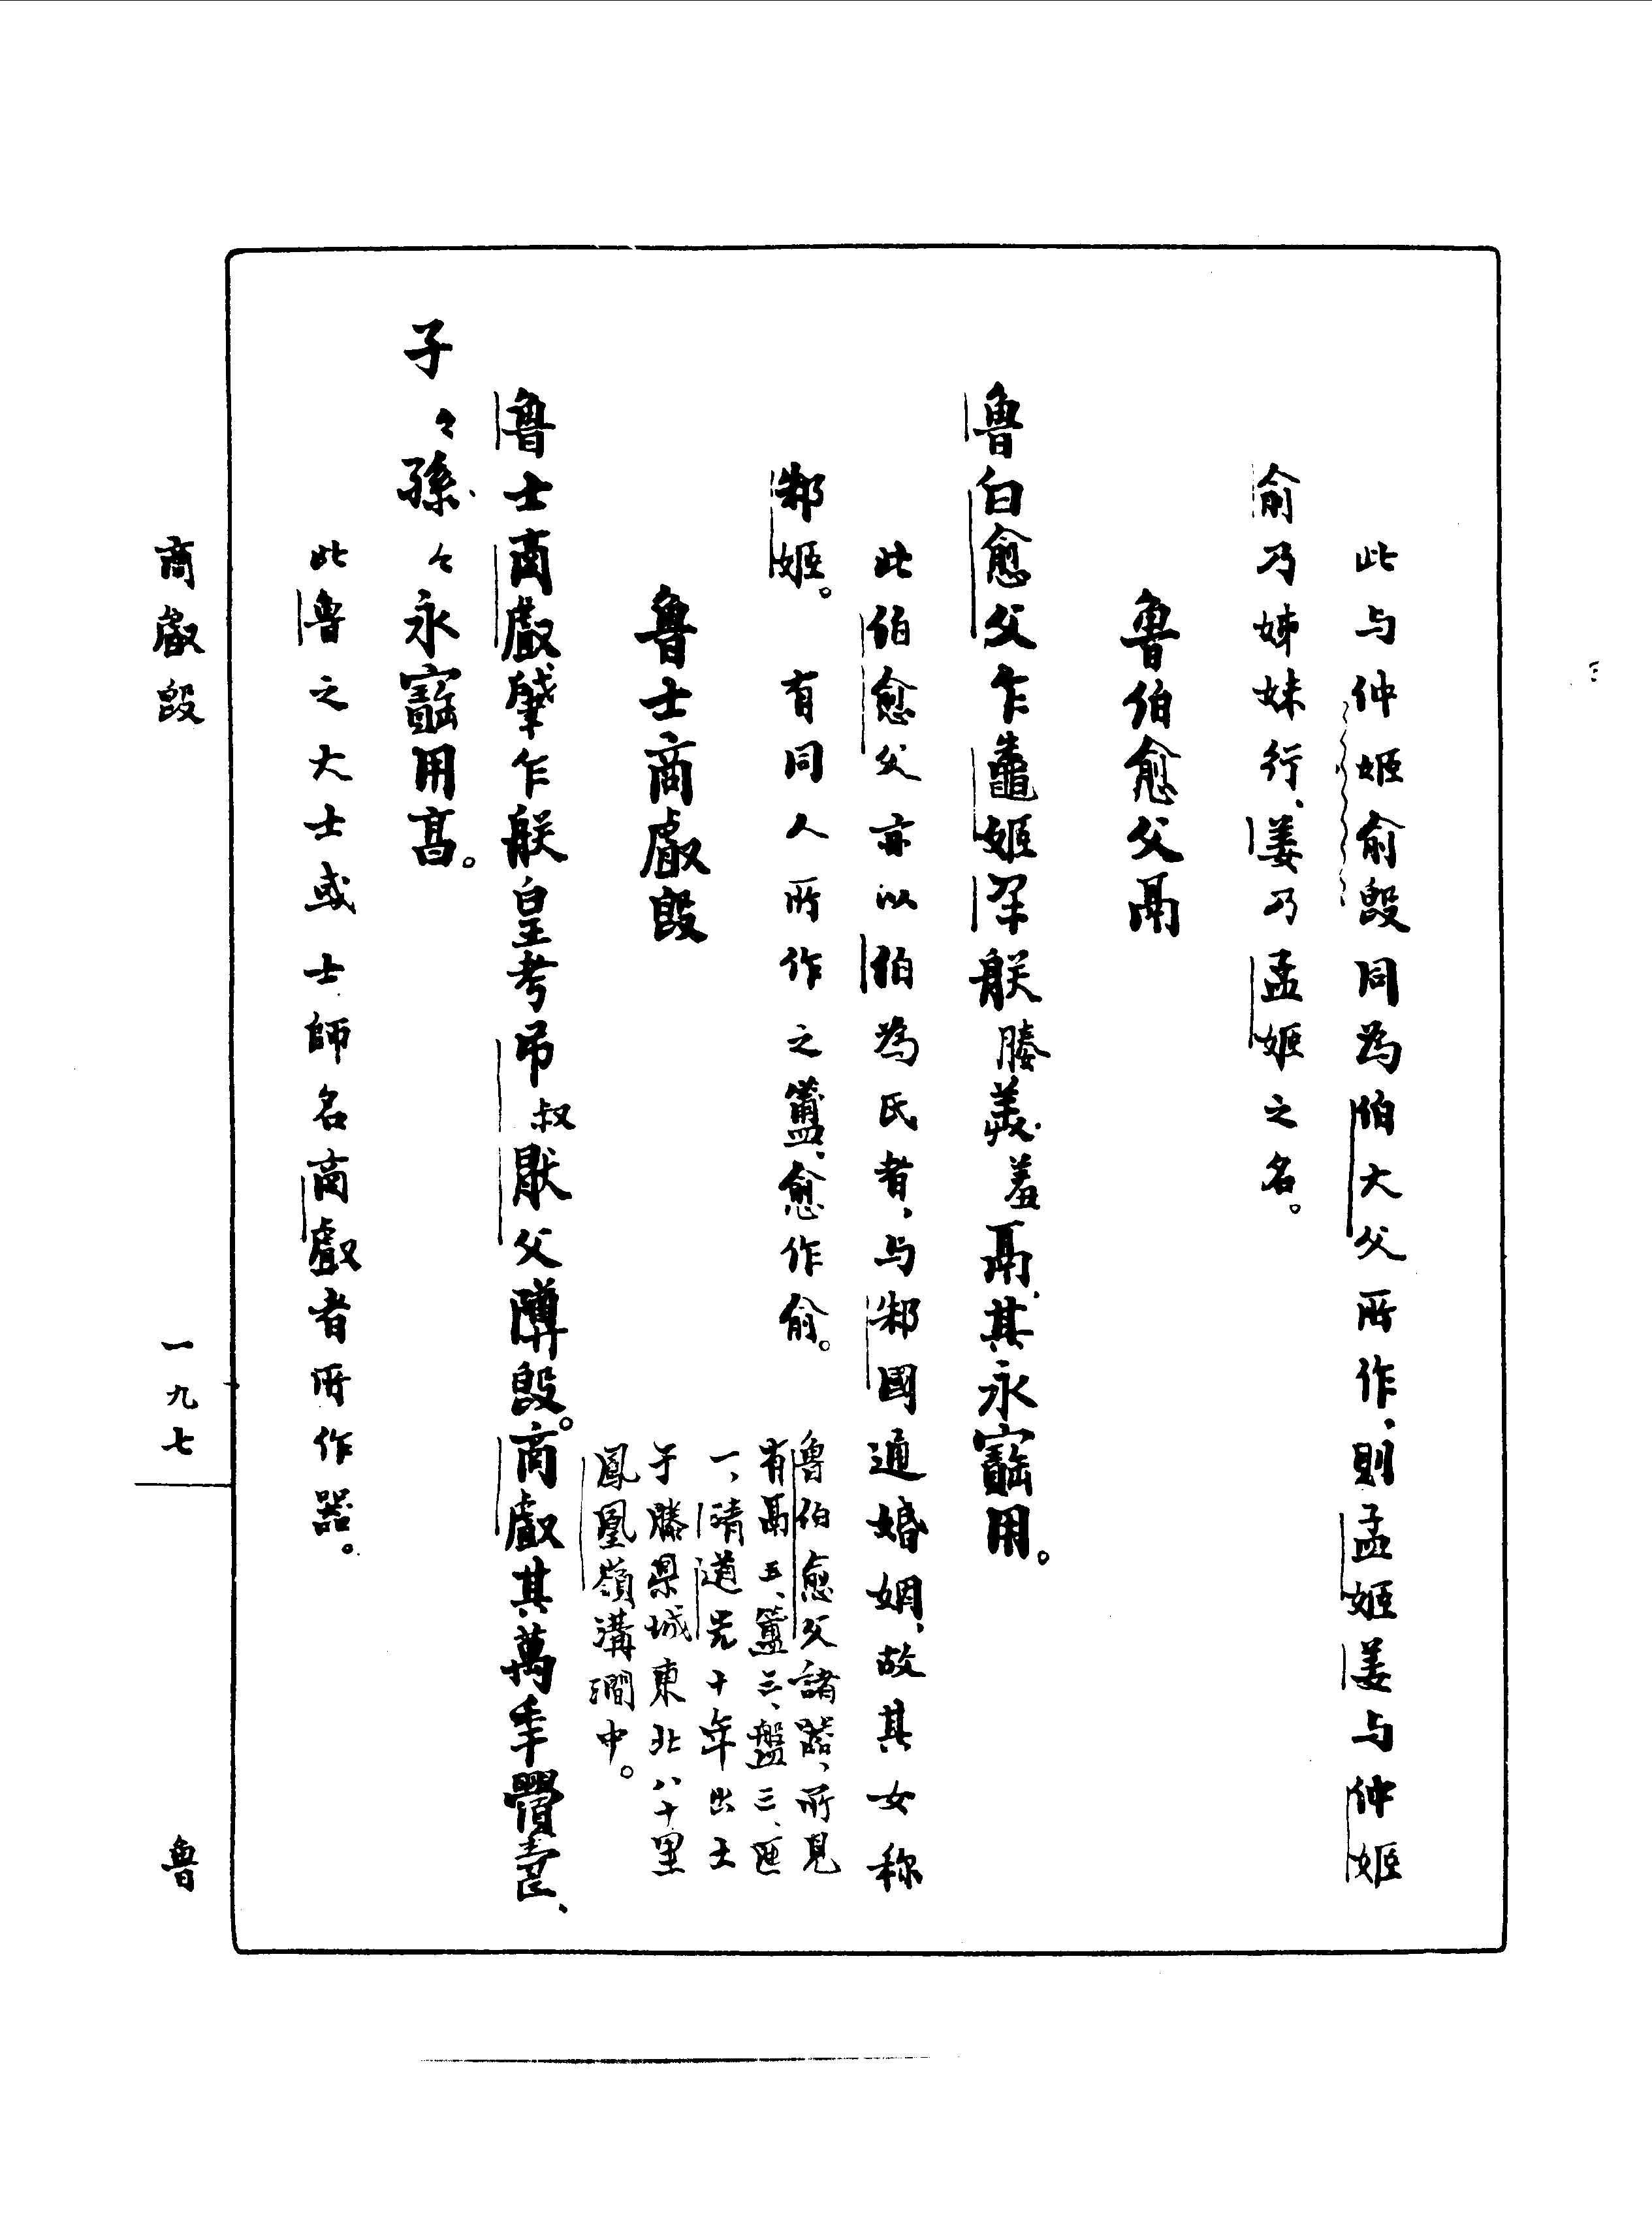 此与仲姬俞𣪘同為伯大父所作、則孟姬姜与仲姬
俞乃姊妹行、姜乃孟姬之名。
魯伯愈父鬲
魯白愈父乍鼄姬𡰥朕媵羞鬲、其永寶用。
此伯愈父亦以伯為氏者、与邾國通婚姻、故其女称
邾姬。 有同人所作之簠、愈作俞。
魯伯愈父諸器、所見
有鬲五、簠三、盤三、匜
一、清道光十年出土
于滕県城東北八十里
鳳凰嶺溝澗中。
魯士商𠭯𣪘
魯士商𠭯肇乍朕皇考弔叔猒父䵼𣪘。商𠭯其萬年眉壽、
子々孫々永寶用亯。
此魯之大士或士師名商𠭯者所作器。
商𠭯𣪘
一九七
魯